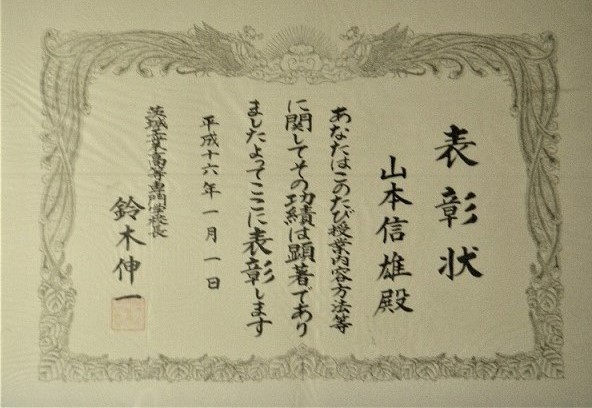 表彰状
山本信雄殿
あなたはこのたび授業内容方法等
に関してその功績は顕著であり
ましたよってここに表彰します
平成十六年一月一日
茨城工業高等専門学校長
鈴木伸一